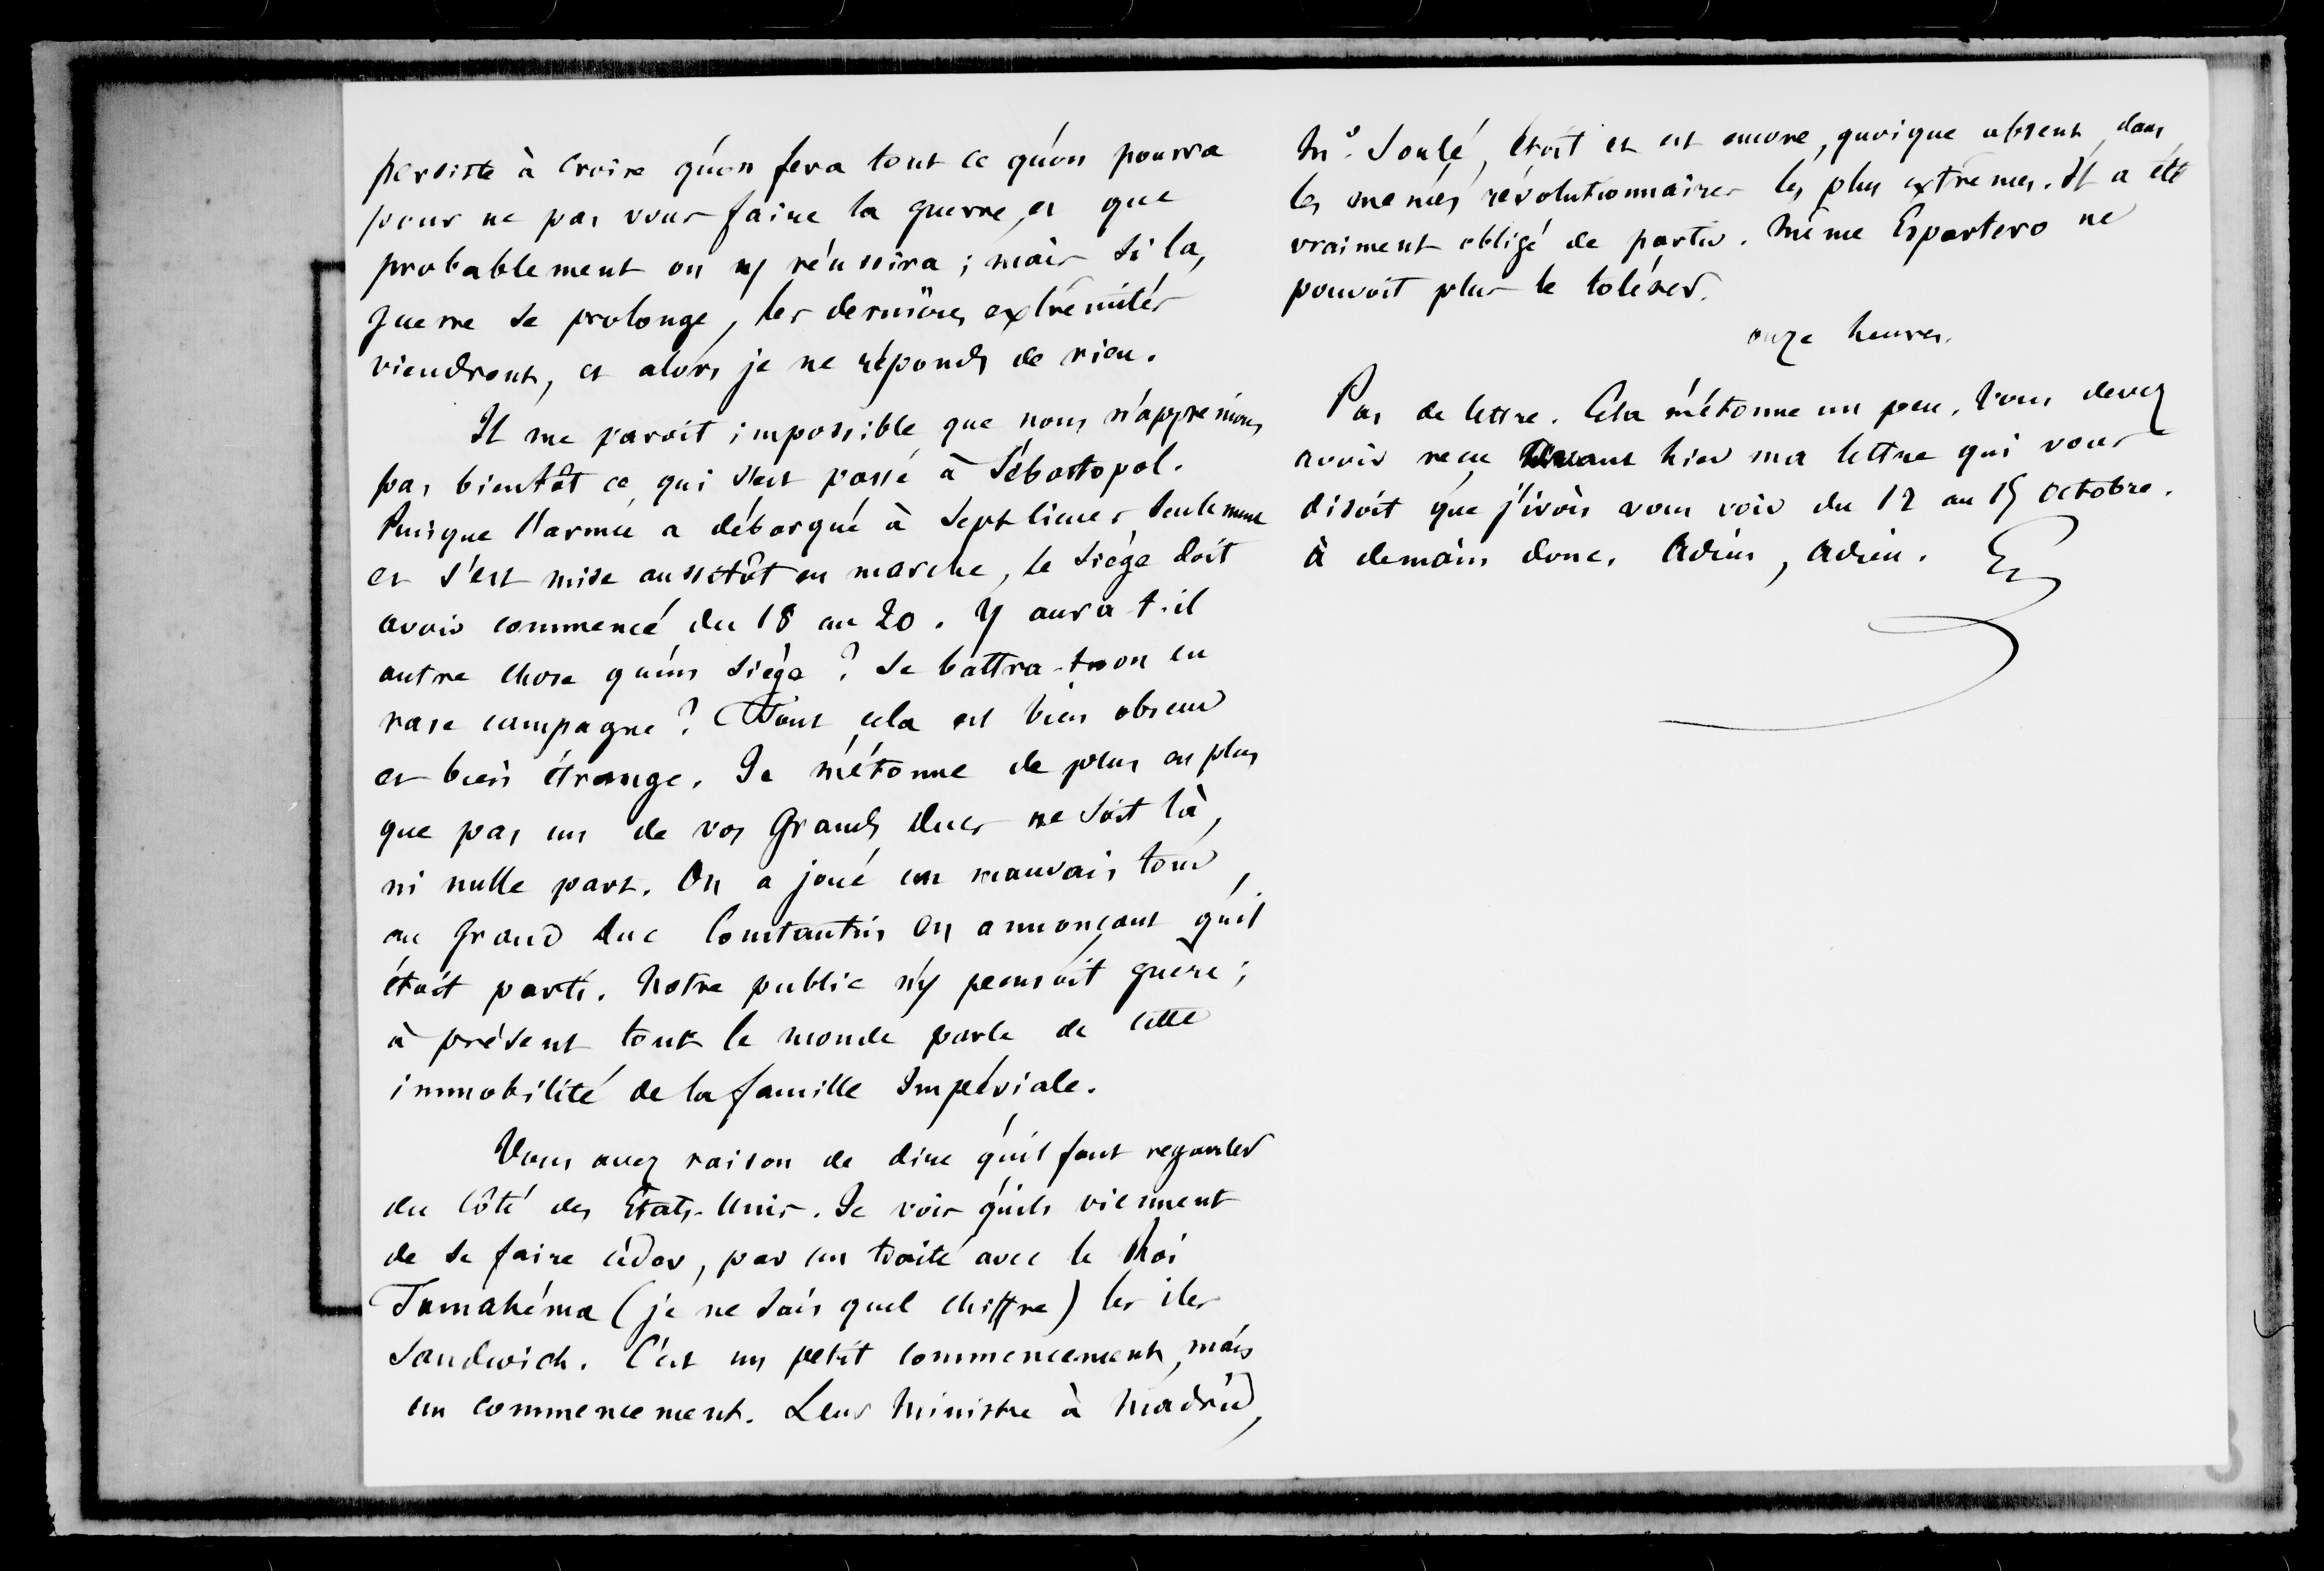 persiste à croire qu'on fera tout ce qu'on pourra
pour ne pas vous faire la guerre, et que
probablement on y réussira ; mais si la
guerre se prolonge, les dernières extrémités
viendront, et alors je ne réponds de rien.
Il me paroit impossible que nous n'apprenions
pas bientôt ce qui s'est passé à Sébastopol.
Puisque l'armée a débarqué à sept lieues seulement
et s'est mise aussitôt en marche, le siège doit
avoir commencé du 18 au 20. Y aura-t-il
autre chose qu'un siège ? Se battra-t-on en
rase campagne ? Tout cela est bien obscur
et bien étrange. Je m'étonne de plus en plus
que pas un de vos Grands ducs ne soit là,
ni nulle part. On a joué un mauvais tour
au grand duc Constantin en annonçant qu'il
étoit parti. Notre public n'y pensoit guère ;
à présent tout le monde parle de cette
immobilité de la famille Impériale.
Vous avez raison de dire qu'il faut regarder
du côté des Etats-Unis. Je vois qu'ils viennent
de se faire céder, par un traité avec le Roi
Tamahéma (je ne sais quel chiffre) les iles
Sandwich. C'est un petit commencement, mais
un commencement. Leur ministre à Madrid,
Mr. Soulé, étoit et est encore, quoique absent, dans
les menées révolutionnaires les plus extrêmes. Il a été
vraiment obligé de partir. Même Espartero ne
pouvoit plus le tolérer.
onze heures.
Pas de lettre. Cela m'étonne un peu. Vous devez
avoir reçu avant hier ma lettre qui vous
disoit que j'irois vous voir du 12 au 15 octobre.
à demain donc. Adieu, adieu.